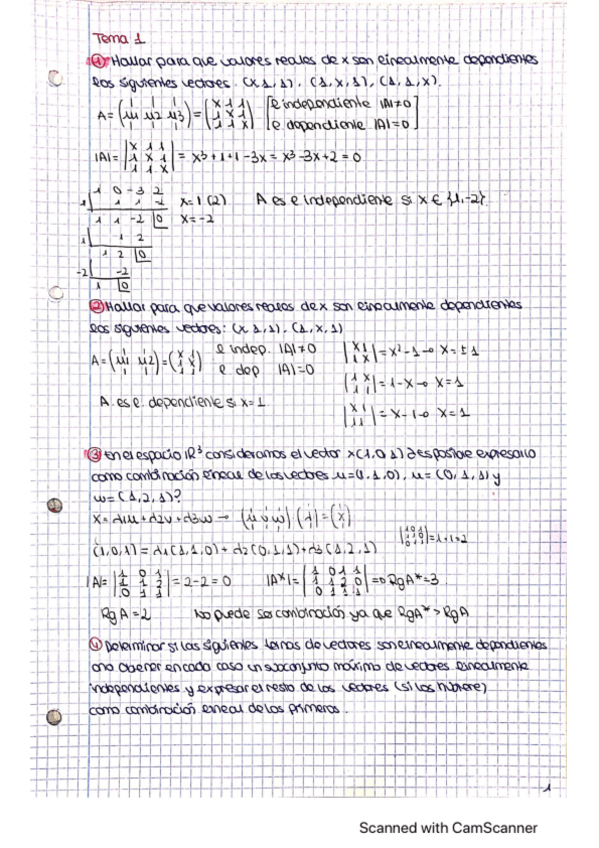 Tema 1
① Hallar para que valores reales de x son linealmente dependientes
los siguientes vectores. (x,1,1), (1,x,1), (1,1,x).
A = (μ1 μ2 μ3) = (x 1 1 / 1 x 1 / 1 1 x) [l independiente |A|≠0]
[l dependiente |A|=0]
|A| = |x 1 1 / 1 x 1 / 1 1 x| = x³+1+1-3x = x³-3x+2 = 0
1 0 -3 2
1 1 1 -2 x=1 (2) A es l independiente si x ∈ {1,-2}
1 1 -2 0 x=-2
1 1 2
1 2 0
-2 -2
1 0
② Hallar para que valores reales de x son linealmente dependientes
los siguientes vectores: (x,1,1), (1,x,1)
A = (μ1 μ2) = (x 1 / 1 x) l indep. |A|≠0 |x 1 / 1 x| = x²-1 → x=±1
l dep |A|=0 |1 x / 1 1| = 1-x → x=1
A es l. dependiente si x=1 |x 1 / 1 1| = x-1 → x=1
③ En el espacio ℝ³ consideramos el vector x(1,0,1) ¿es posible expresarlo
como combinación lineal de los vectores μ=(1,1,0), μ=(0,1,1) y
w=(1,2,1)?
x = λ1μ+λ2v+λ3w → (μ v w)(λ) = (x)
(1,0,1) = λ1(1,1,0)+λ2(0,1,1)+λ3(1,2,1) =1+1=2
|A| = |1 0 1 / 1 1 2 / 0 1 1| = 2-2=0 |A*| = |1 0 1 1 / 1 1 2 0 / 0 1 1 1| RgA*=3
RgA=2 No puede ser combinación ya que RgA*>RgA
④ Determinar si las siguientes ternas de vectores son linealmente dependientes
o no. Obtener en cada caso un subconjunto máximo de vectores linealmente
independientes y expresar el resto de los vectores (si los hubiere)
como combinación lineal de los primeros.
1
Scanned with CamScanner